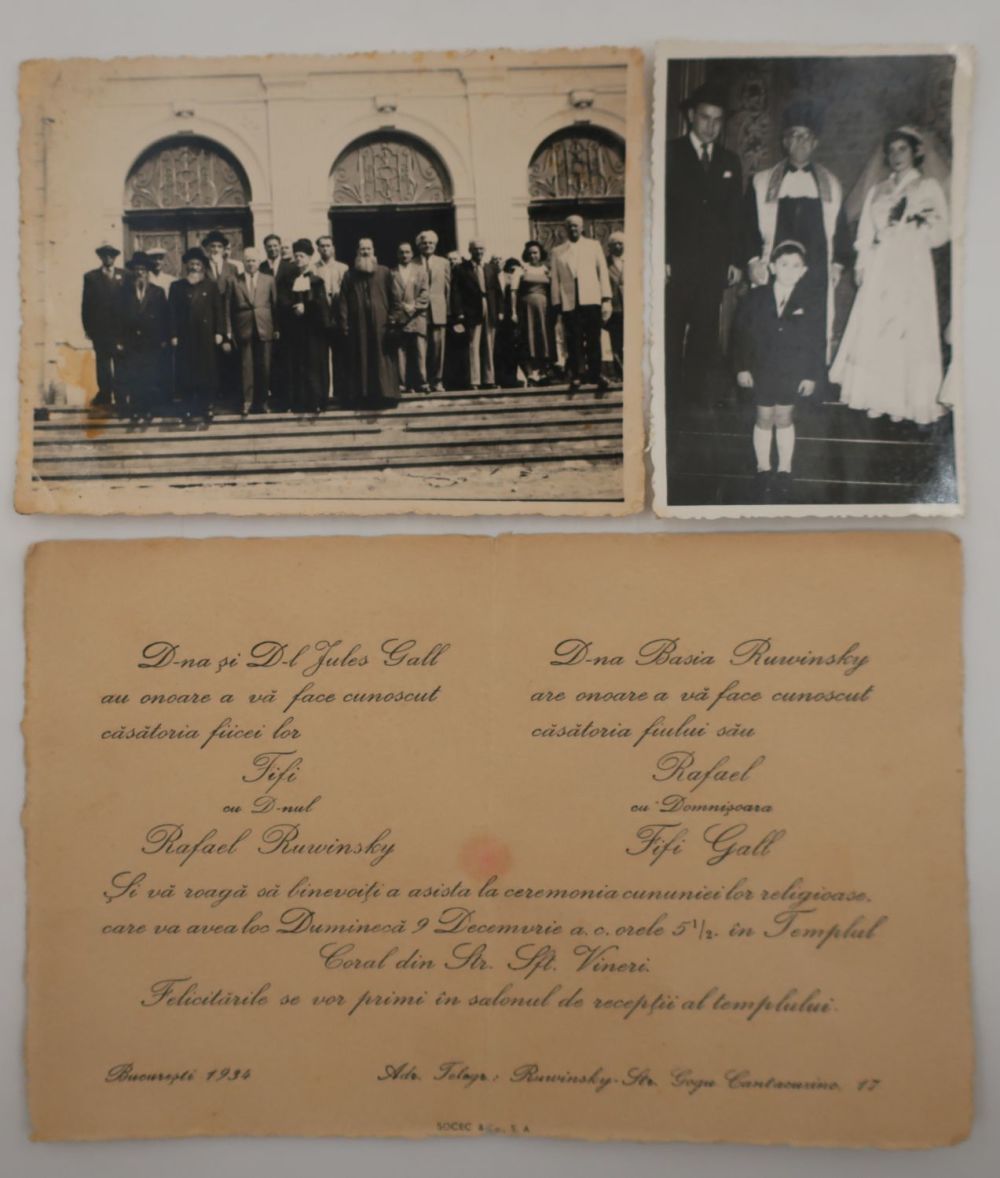 D-na și D-l Jules Gall
au onoare a vă face cunoscut
căsătoria fiicei lor
Fifi
cu D-nul
Rafael Ruwinsky
D-na Basia Ruwinsky
are onoare a vă face cunoscut
căsătoria fiului său
Rafael
cu Domnișoara
Fifi Gall
Și vă roagă să binevoiți a asista la ceremonia cununiei lor religioase,
care va avea loc Duminecă 9 Decemvrie a. c. orele 5 1/2. în Templul
Coral din Str. Sft. Vineri.
Felicitările se vor primi în salonul de recepții al templului.
București 1934
Adr. Telegr.: Ruwinsky-Str. Gogu Cantacuzino. 17
SOCEC & Co., S. A